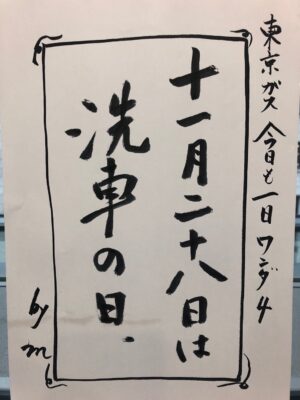 東京ガス 今日も一日ワンダ4
十一月二十八日は
洗車の日.
by m